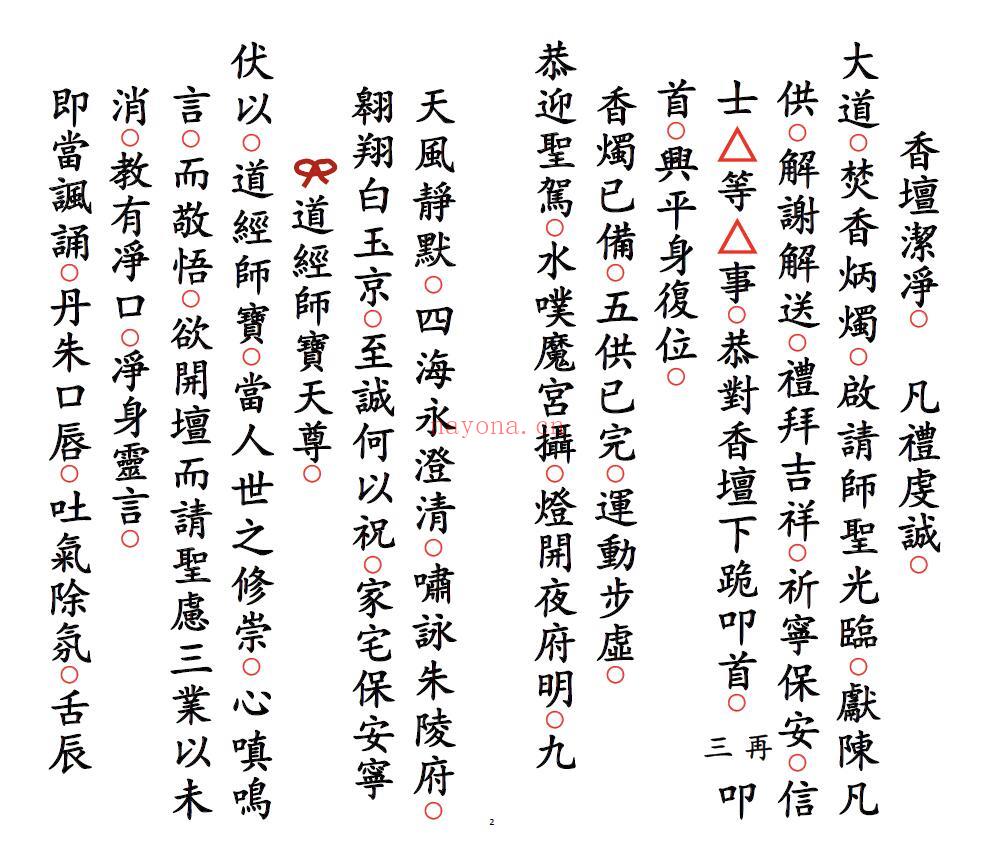 香壇潔凈○ 凡禮虔誠○
大道○焚香炳燭○啟請師聖光臨○獻陳凡
供○解謝解送○禮拜吉祥○祈寧保安○信
士△等△事○恭對香壇下跪叩首○再三叩
首○興平身復位○
香燭已備○五供已完○運動步虛○
恭迎聖駕○水噗魔宮攝○燈開夜府明○九
天風靜默○四海永澄清○嘯詠朱陵府○
翱翔白玉京○至誠何以祝○家宅保安寧
道經師寶天尊○
伏以○道經師寶○當人世之修崇○心嗔鳴
言○而敬悟○欲開壇而請聖慮三業以未
消○教有凈口○凈身靈言○
即當諷誦○丹朱口唇○吐氣除氛○舌辰
2
nayona.cn